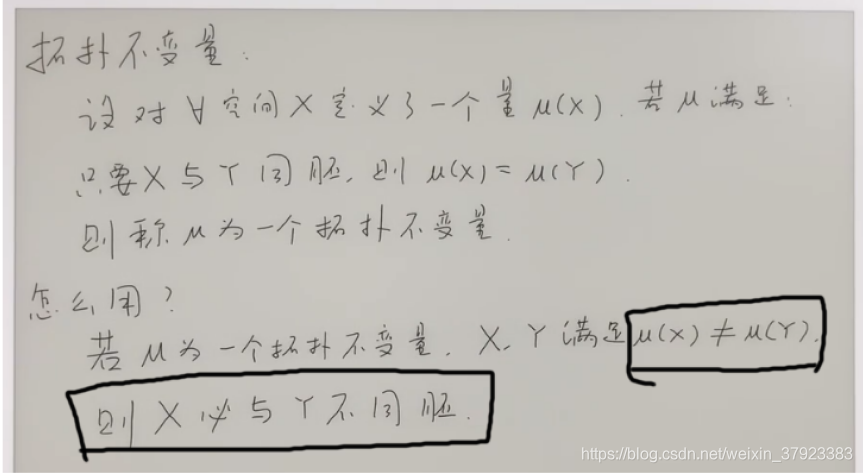 拓扑不变量：
设对∀空间X定义了一个量μ(X). 若μ满足：
只要X与Y同胚, 则μ(X)=μ(Y).
则称μ为一个拓扑不变量.
怎么用？
若μ为一个拓扑不变量. X、Y满足μ(X)≠μ(Y).
则X必与Y不同胚.
https://blog.csdn.net/weixin_37923383